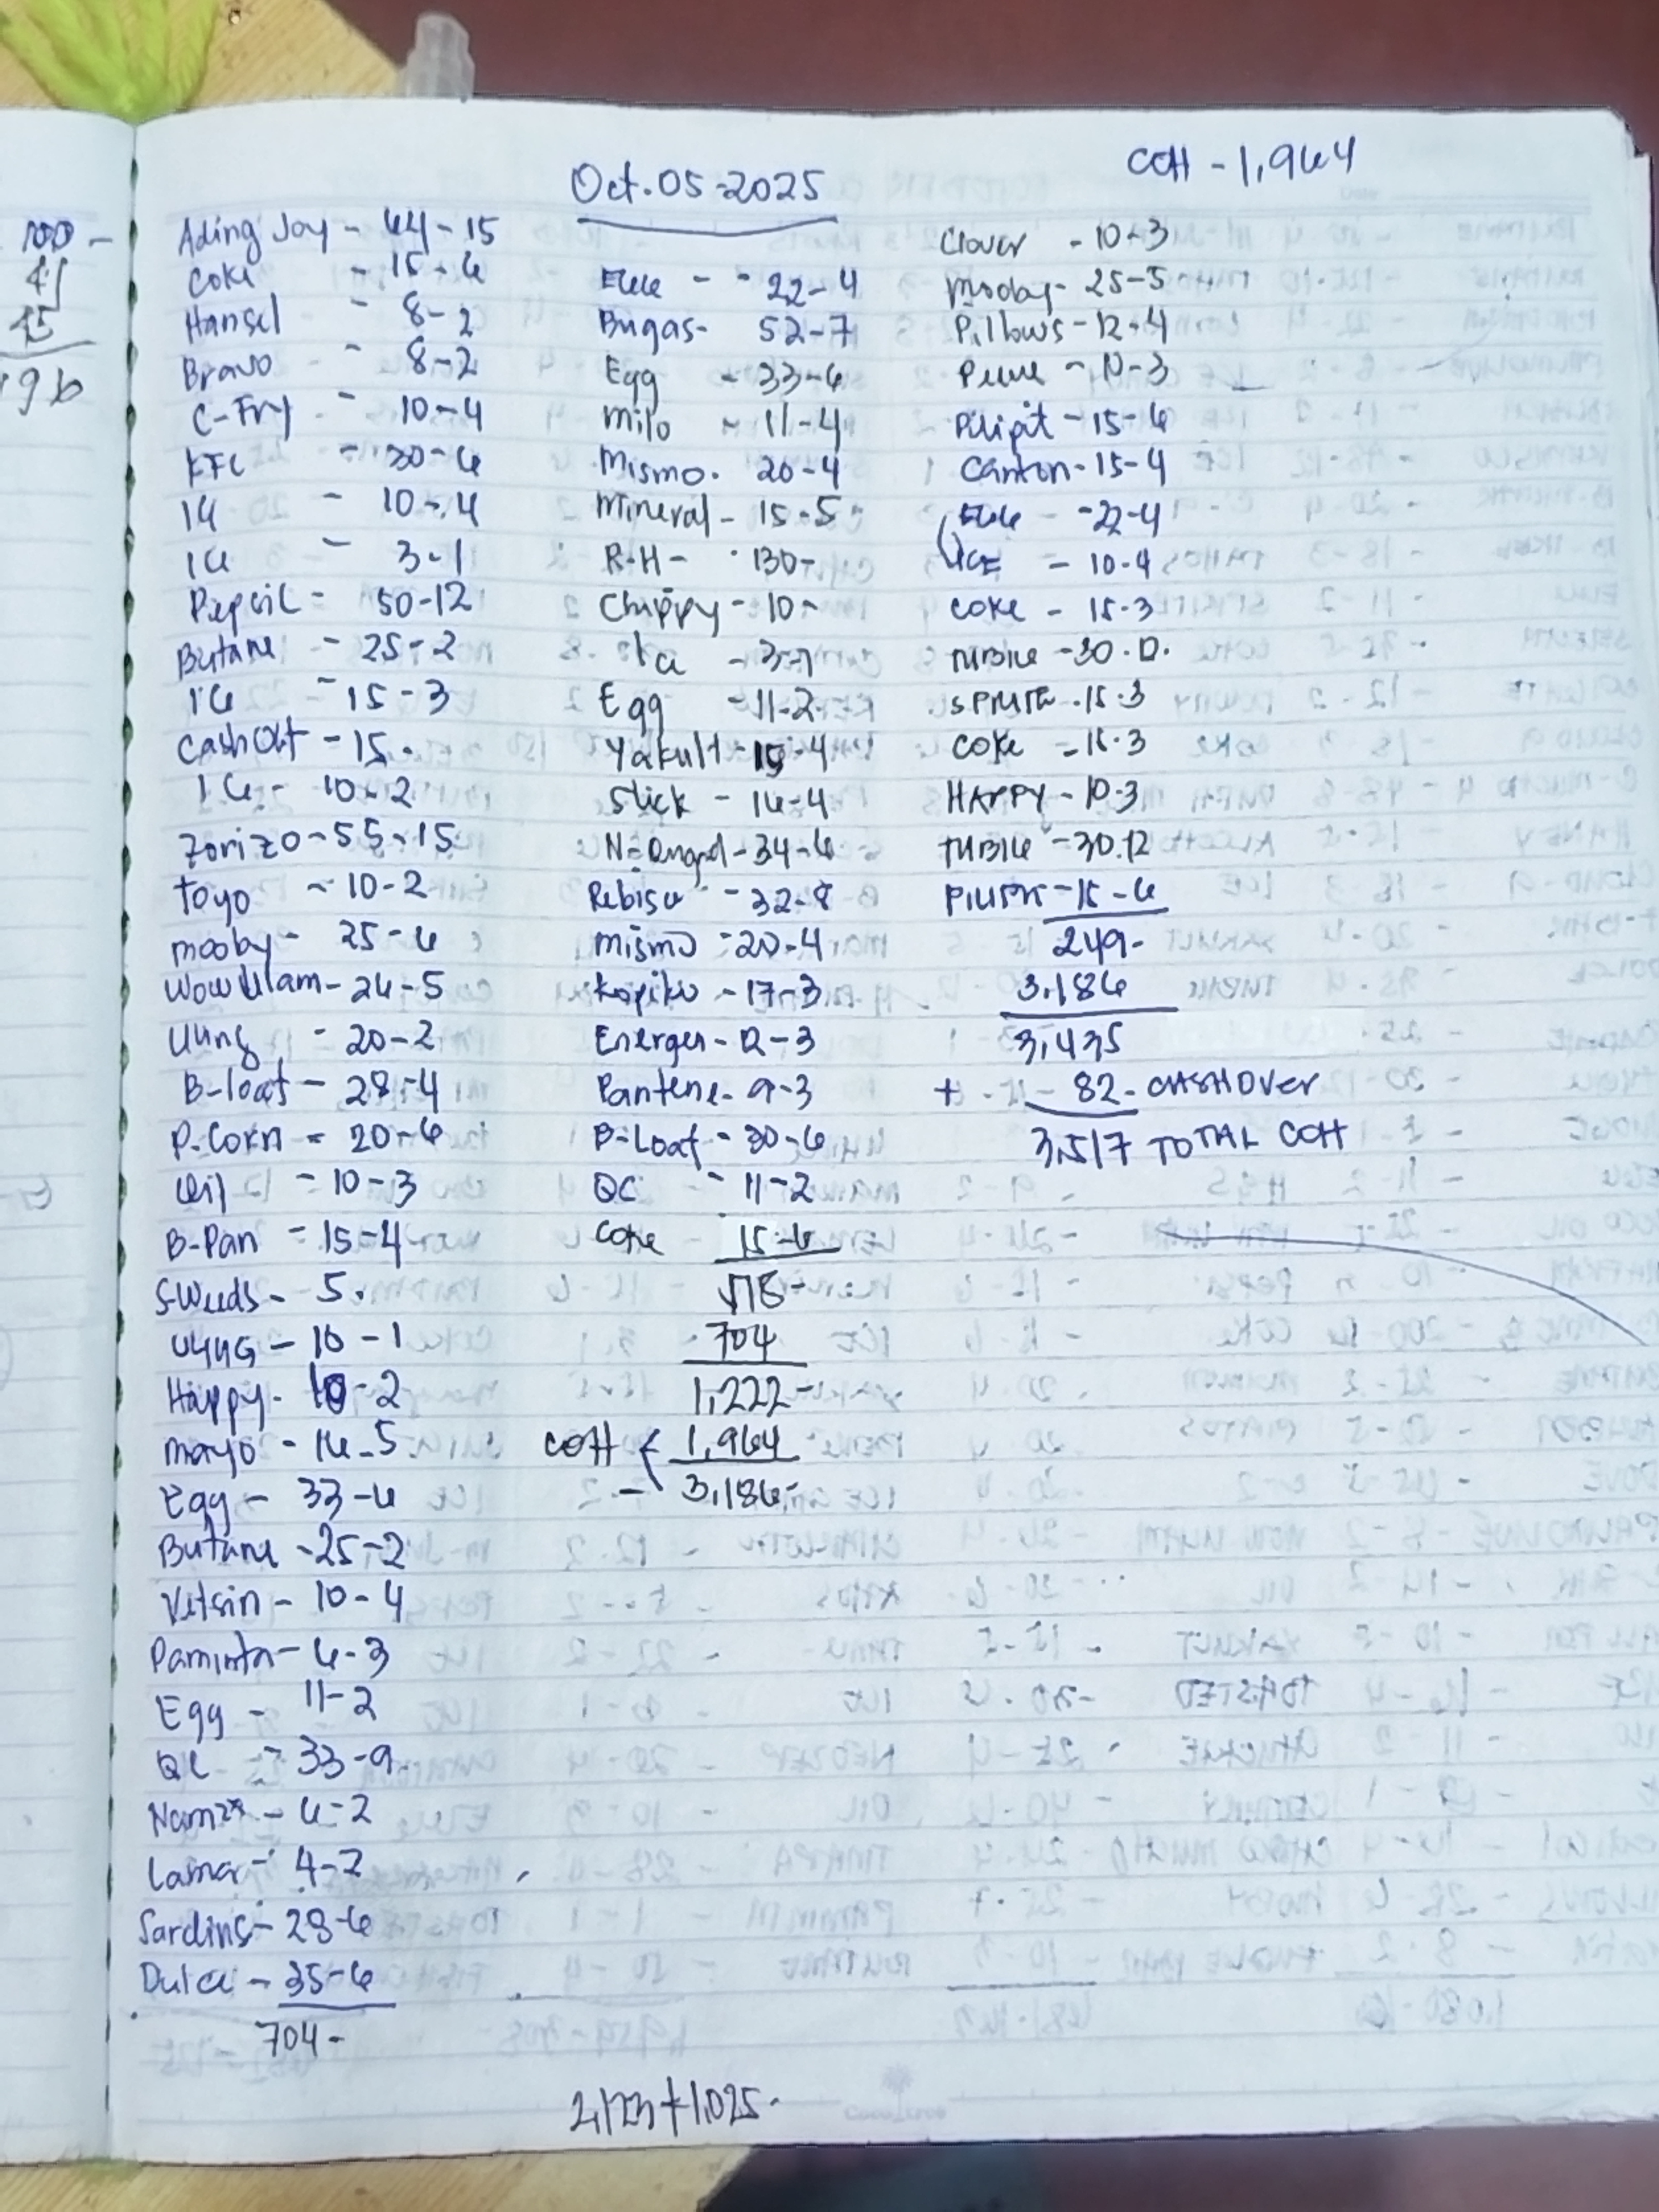 COH - 1,964
Oct. 05-2025
Ading Joy - 44 - 15
Coke - 15-6
Hansel - 8-2
Bravo - 8-2
C-Fry - 10-4
KFC - 30-6
ICE - 10-4
ICE - 3-1
Pepsi L - 50-12
Butane - 25-2
ICE - 15-3
Cash Out - 15.
ICE - 10-2
Zorizo - 55-15
Toyo - 10-2
mooby - 25-6
Wow Ulam - 26-5
Uling - 20-2
B-loaf - 28-4
P.Corn = 20-6
Oil - 10-3
B-Pan - 15-4
S-Weeds - 5.
Uling - 10-1
Happy - 10-2
mayo - 16-5
Egg - 33-6
Butane - 25-2
Vetsin - 10-4
Paminta - 6-3
Egg - 11-2
QC - 33-9
Nam2x - 6-2
Lamar - 4-2
Sardins - 28-6
Dulce - 35-6
704-
- 22-4
Bugas - 52-7
Egg - 33-6
Milo - 11-4
Mismo. 20-4
Mineral - 15-5
R-H - 130-
Chippy - 10-
Ice - 3-1
Egg - 11-2
Yakult - 15-4
Stick - 16-4
- 34-6
Rebisco - 32-8
Mismo - 20-4
Kopiko - 17-3
Energen - 12-3
Pantene - 9-3
B-Loaf - 30-6
QC - 11-2
Coke 15-6
518-
704
1,222-
COH 1,964
- 3,186-
Clover - 10-3
Mooby - 25-5
Pillows - 12-4
- 10-3
Pilipit - 15-6
Canton - 15-4
- 22-4
ICE = 10-4
COKE - 15-3
- 30.12.
SPRITE - 15-3
COKE - 15-3
HAPPY - 10-3
- 30.12
- 15-6
249-
3,186
3,435
+ 82- CASHOVER
3,517 TOTAL COH
2,123+1,025.